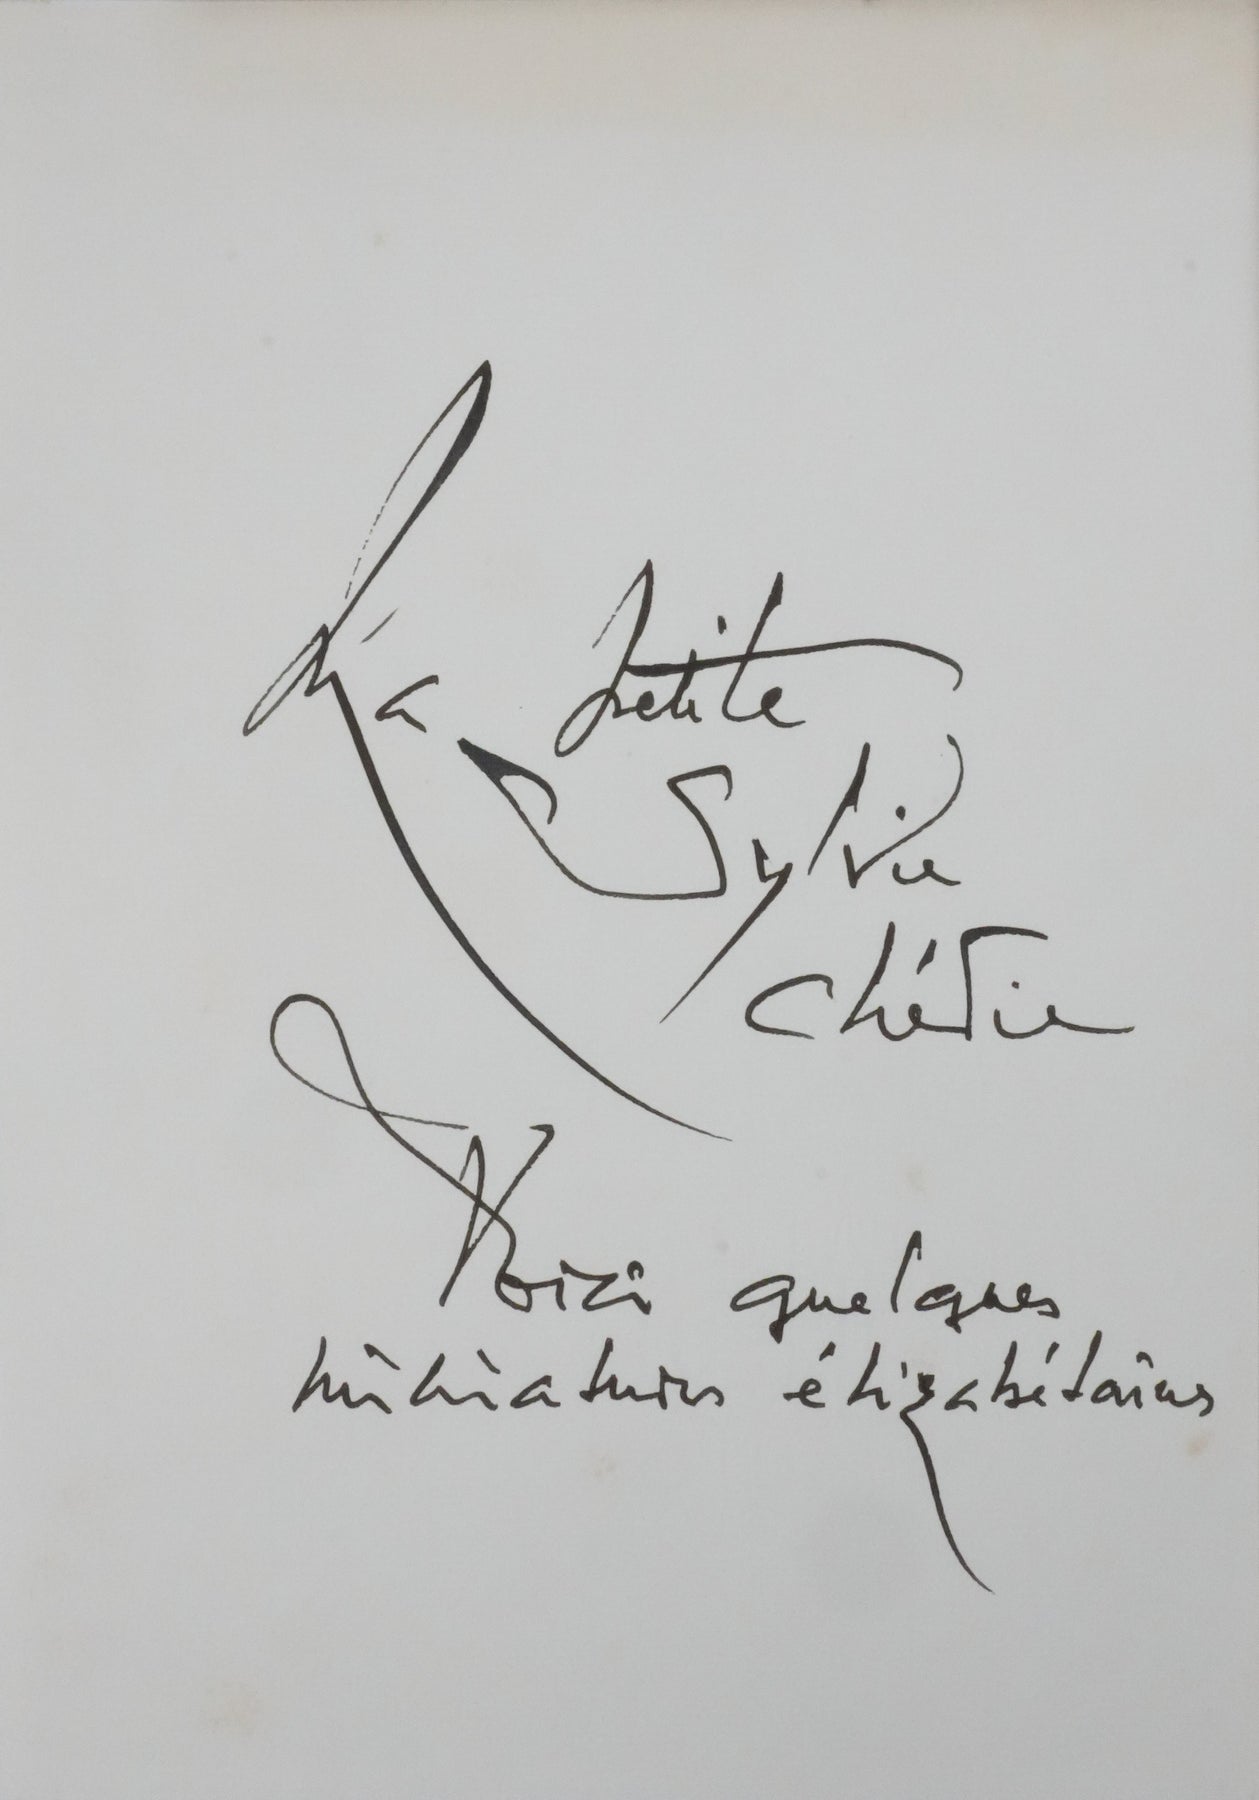 Ma petite
Sylvie
chérie
Voici quelques
miniatures élizabétaines